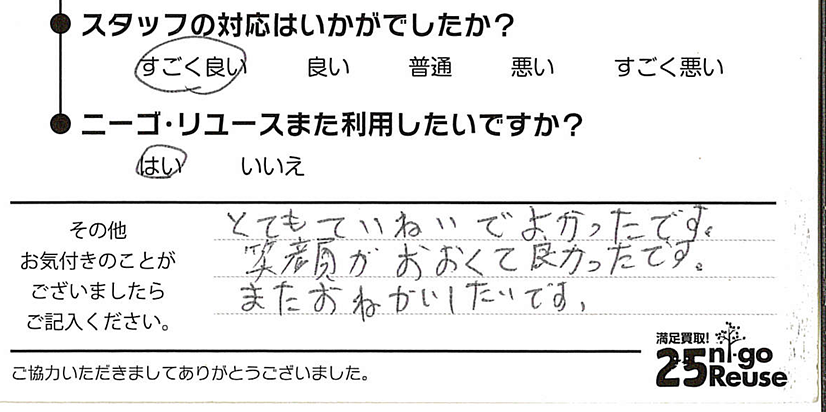 ●スタッフの対応はいかがでしたか？
すごく良い 良い 普通 悪い すごく悪い
●ニーゴ・リユースまた利用したいですか？
はい いいえ
その他
お気付きのことが
ございましたら
ご記入ください。
とてもていねいでよかったです。
笑顔がおおくて良かったです。
またおねがいしたいです。
満足買取!
25 ni-go
Reuse
ご協力いただきましてありがとうございました。